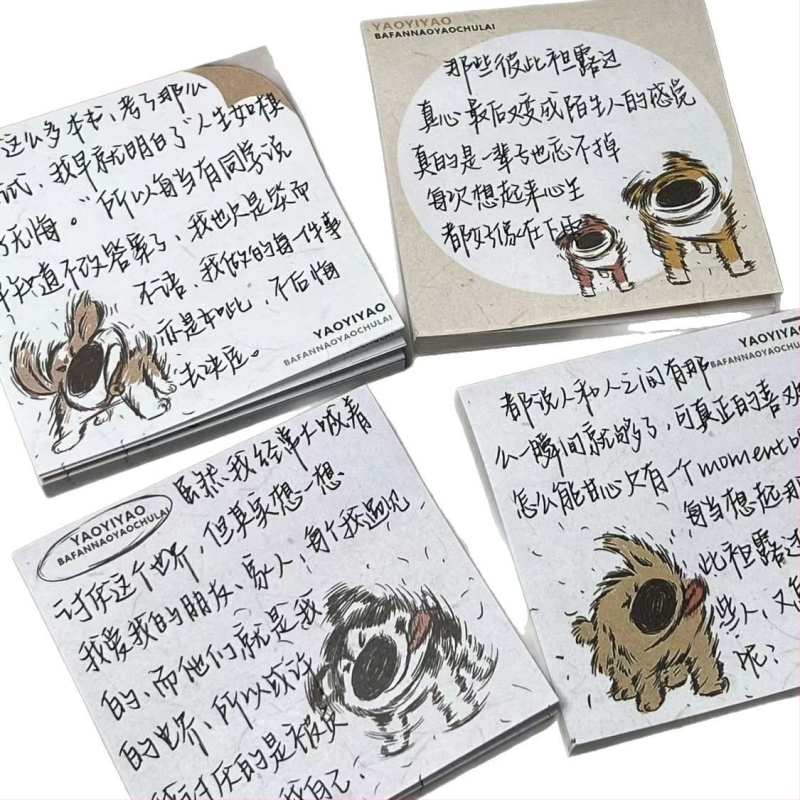 这么多本书、考了那么
试，我早就明白了“人生如棋
了无悔。”所以每当有同学说
早知道不改答案了，我也只是笑而
不语，我做的每一件事
亦是如此，不后悔
去决定。
YAOYIYAO
BAFANNAOYAOCHULAI
YAOYIYAO
BAFANNAOYAOCHULAI
那些彼此袒露过
真心最后又变成陌生人的感觉
真的是一辈子也忘不掉
每次想起来心里
都好像在下雨
YAOYIYAO
BAFANNAOYAOCHULAI
虽然我经常大喊着
讨厌这个世界，但其实想一想
我爱我的朋友、家人，每个我遇见
的，而他们就是我
的世界，所以或许
我讨厌的是
我自己.
YAOYIYAO
BAFANNAOYAOCHULAI
都说人和人之间有那
么一瞬间就够了，可真正的喜欢
怎么能甘心只有一个moment
每当想起那
此袒露过
些人，又
呢？